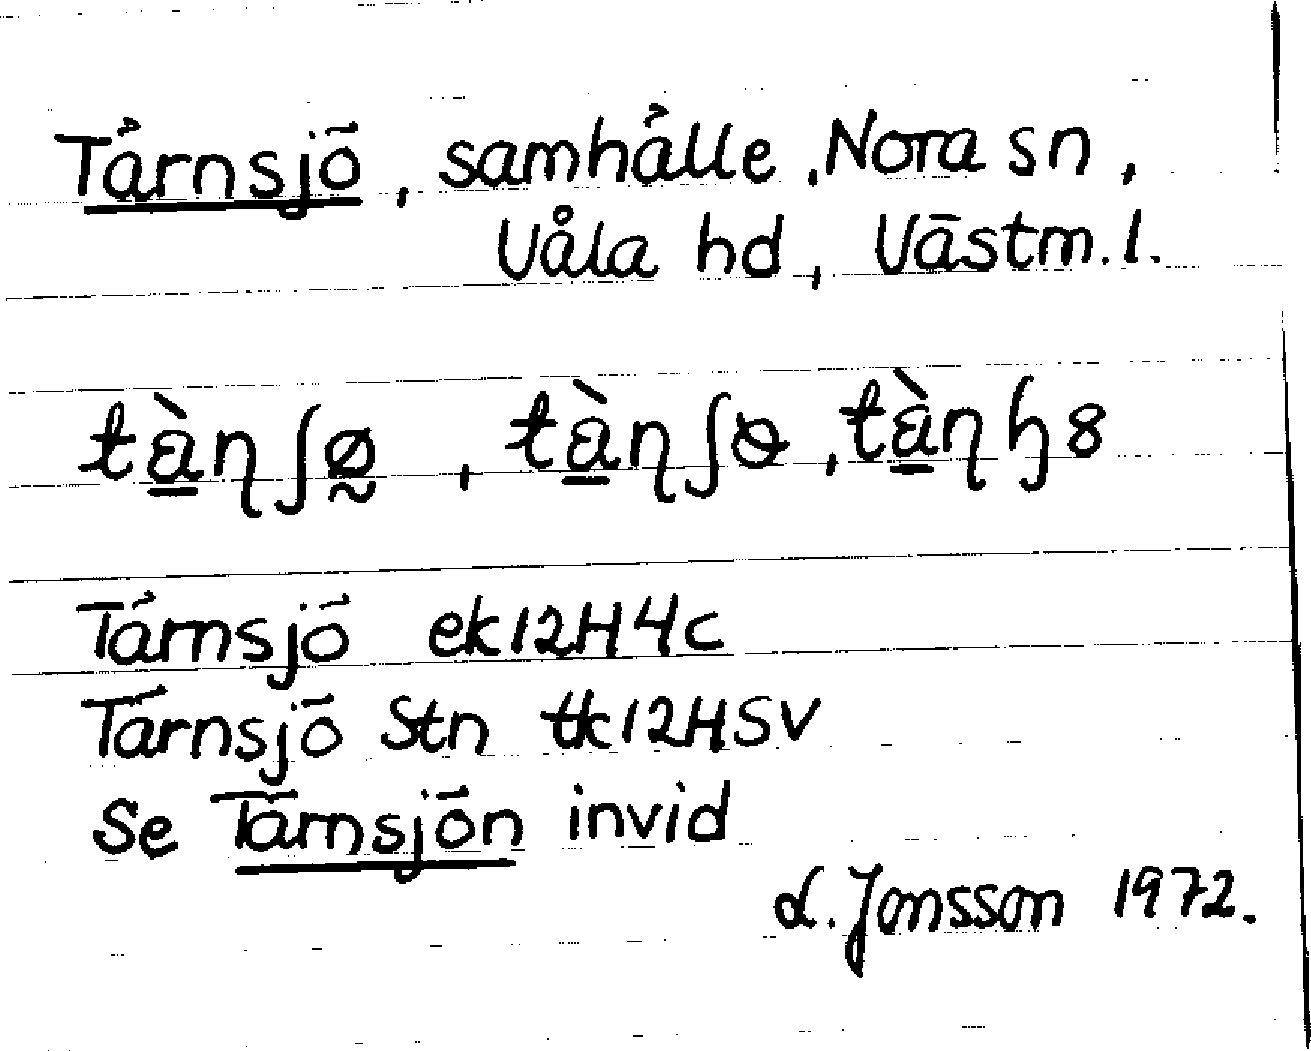 Tärnsjö, samhälle, Nora sn,
Våla hd, Västm. l.
tàɳʃø̰, tàɳʃɵ, tàɳꜧ8
Tärnsjö ek12H4c
Tärnsjö Stn tk12HSV
Se Tärnsjön invid
L. Jonsson 1972.